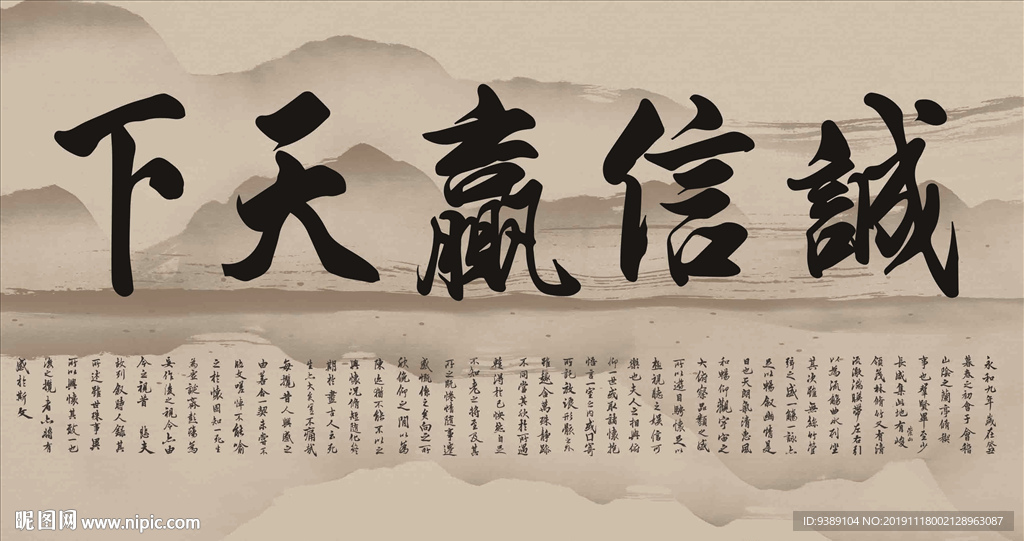 誠信贏天下
永和九年歲在癸丑
暮春之初會于會稽
山陰之蘭亭脩禊
事也群賢畢至少
長咸集此地有崇山峻
領茂林脩竹又有清
流激湍暎帶左右引
以為流觴曲水列坐
其次雖無絲竹管
弦之盛一觴一詠亦
足以暢叙幽情是
日也天朗氣清惠風
和暢仰觀宇宙之
大俯察品類之盛
所以遊目騁懷足以
極視聽之娛信可
樂也夫人之相與俯
仰一世或取諸懷抱
悟言一室之內或因寄
所託放浪形骸之外
雖趣舍萬殊靜躁
不同當其欣於所遇
暫得於己怏然自足
不知老之將至及其
所之既惓情隨事遷
感慨係之矣向之所
欣俛仰之間以為
陳迹猶不能不以之
興懷況脩短隨化終
期於盡古人云死
生亦大矣豈不痛哉
每攬昔人興感之
由若合一契未嘗不
臨文嗟悼不能喻
之於懷固知一死生
為虛誕齊彭殤為
妄作後之視今亦由
今之視昔 悲夫
故列叙時人錄其
所述雖世殊事異
所以興懷其致一也
後之攬者亦將有
感於斯文
昵图网 www.nipic.com
ID:9389104 NO:20191118002128963087